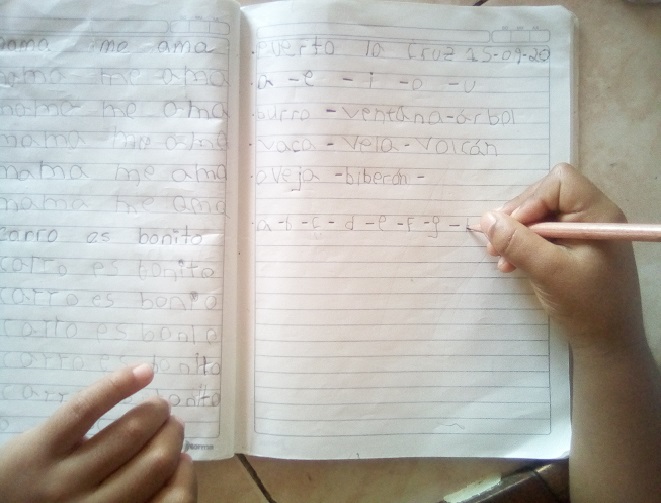 mama me ama
mama me ama
mama me ama
mama me ama
mama me ama
mama me ama
carro es bonito
carro es bonito
carro es bonito
carro es bonito
carro es bonito
carro es bonito
puerto la Cruz 25-09-20
a - e - i - o - u
burro - ventana - árbol
vaca - vela - volcán
oveja - biberón -
a - b - c - d - e - f - g -
norma